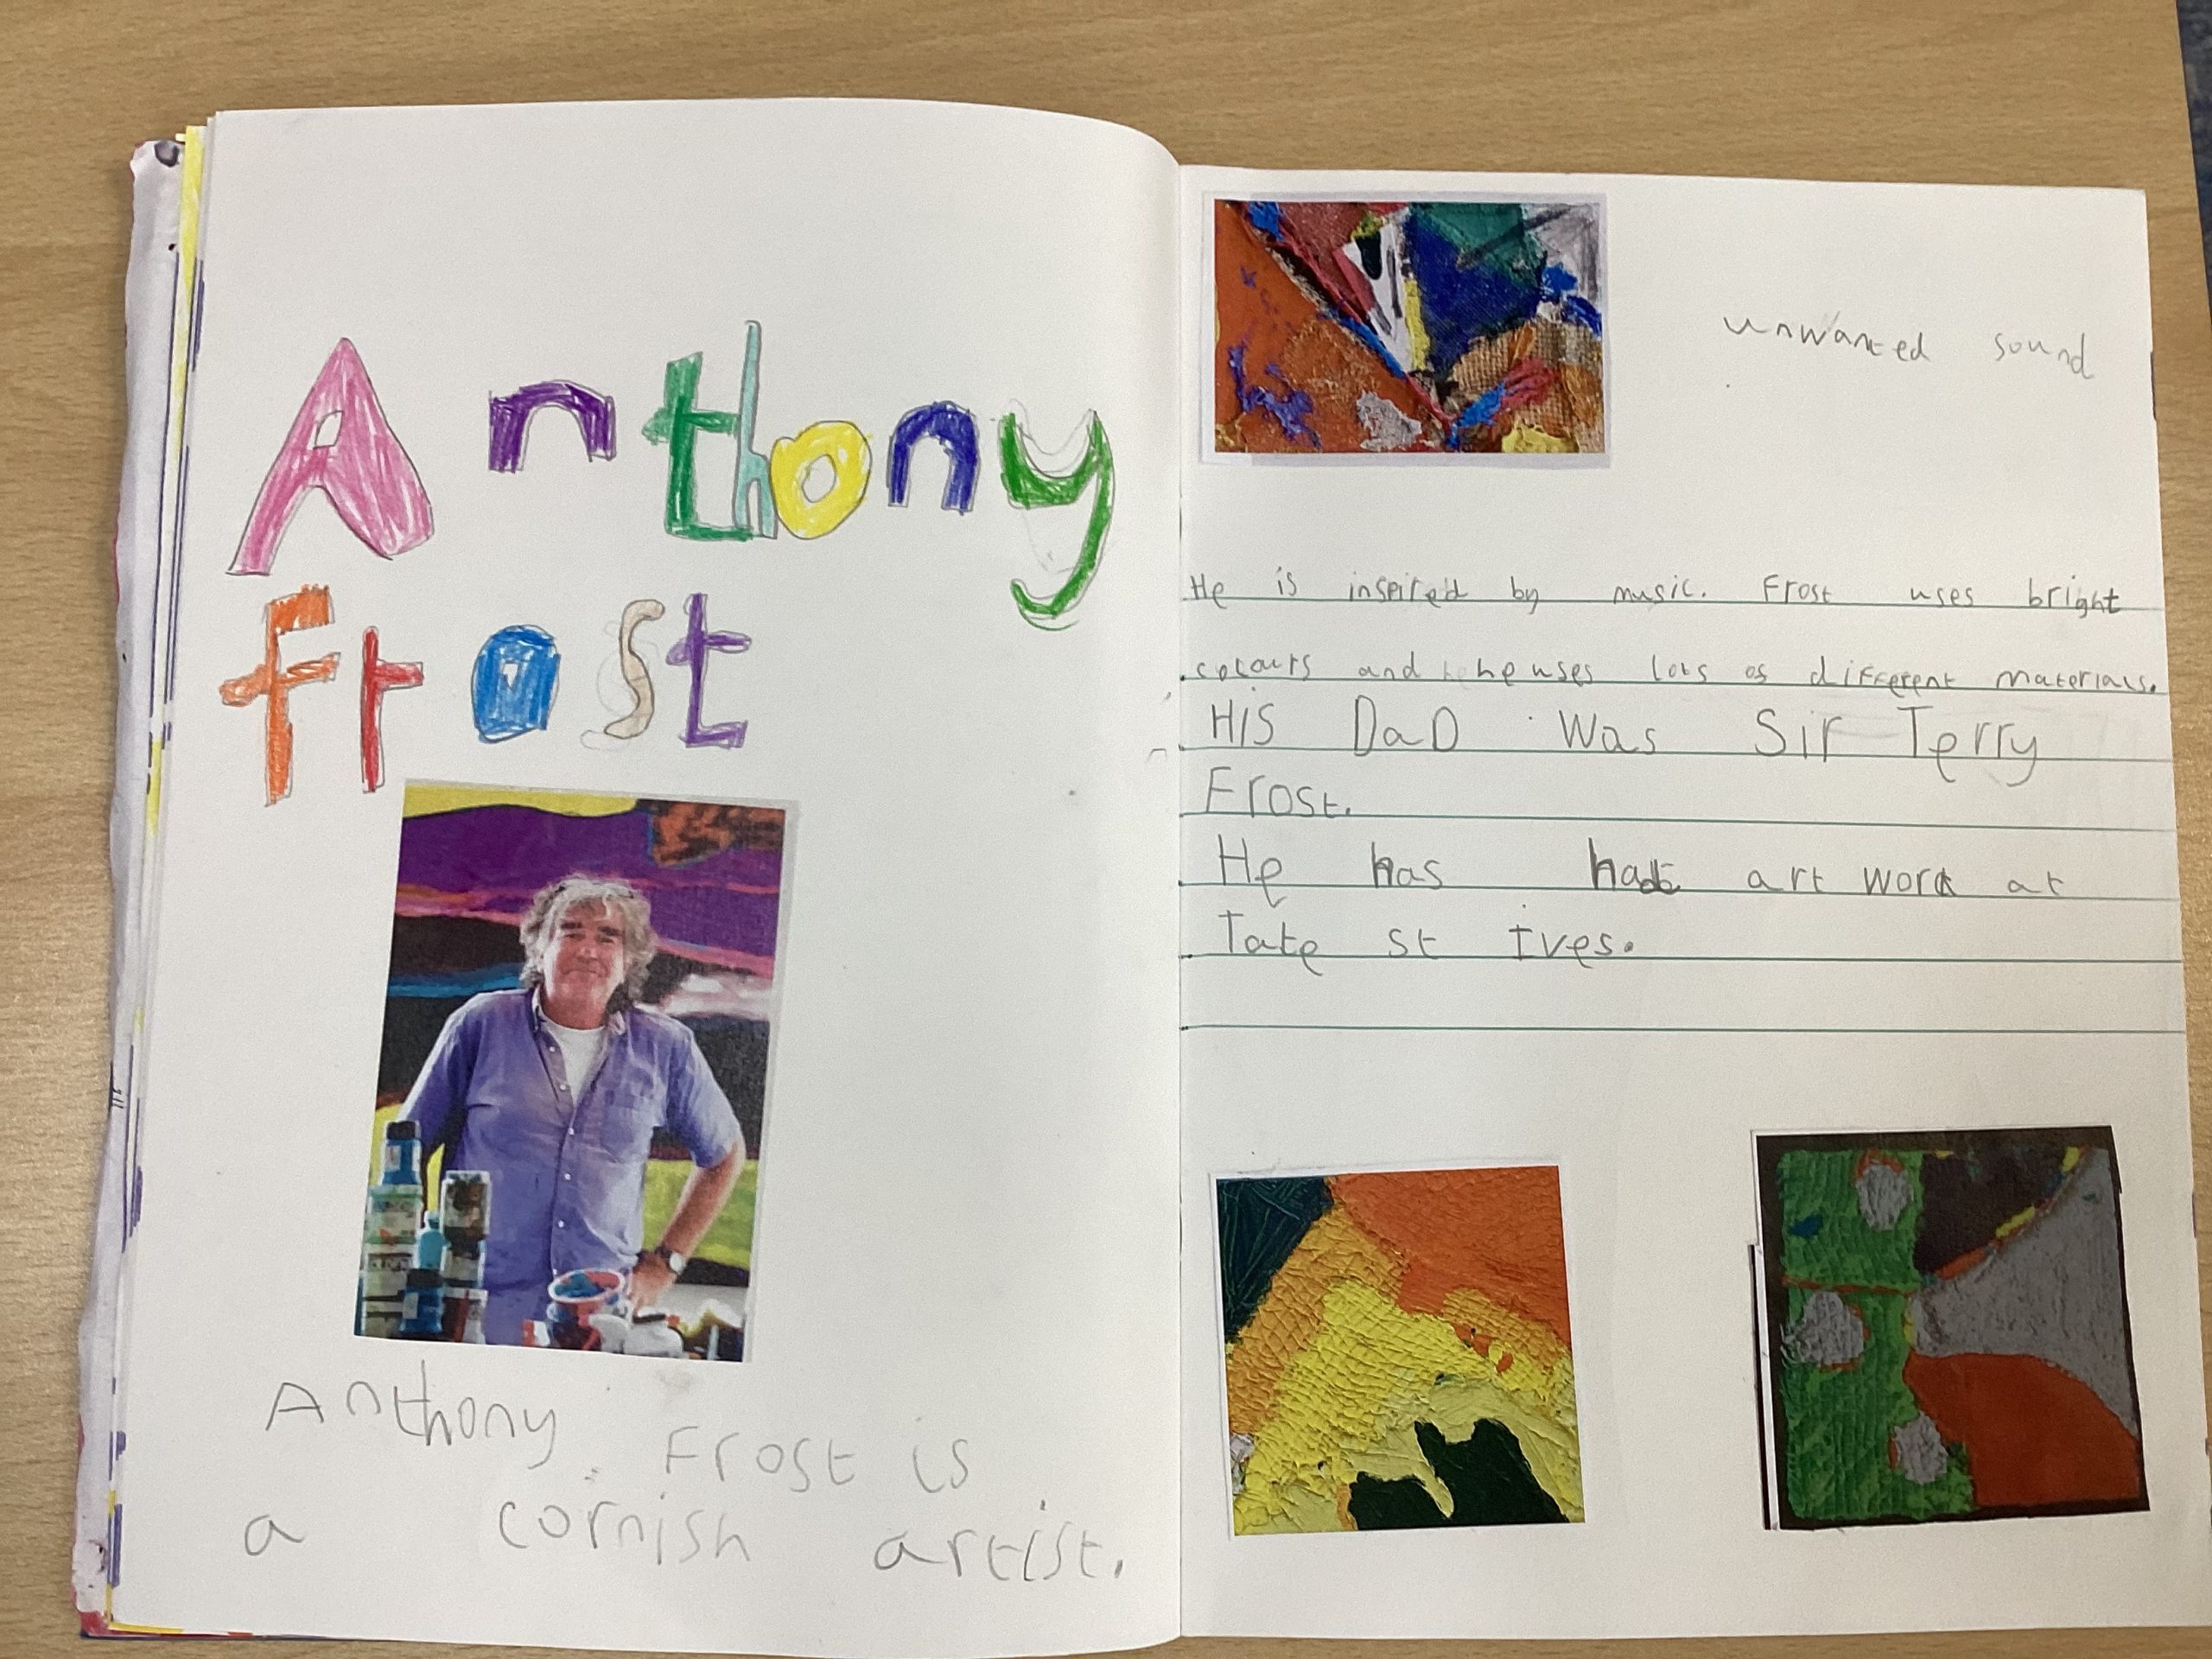 Anthony
Frost
Anthony Frost is
a cornish artist.
unwanted sound
He is inspired by music. Frost uses bright
colours and he uses lots of different materials.
HiS DaD Was Sir Terry
Frost.
He has had art work at
Tate st Ives.